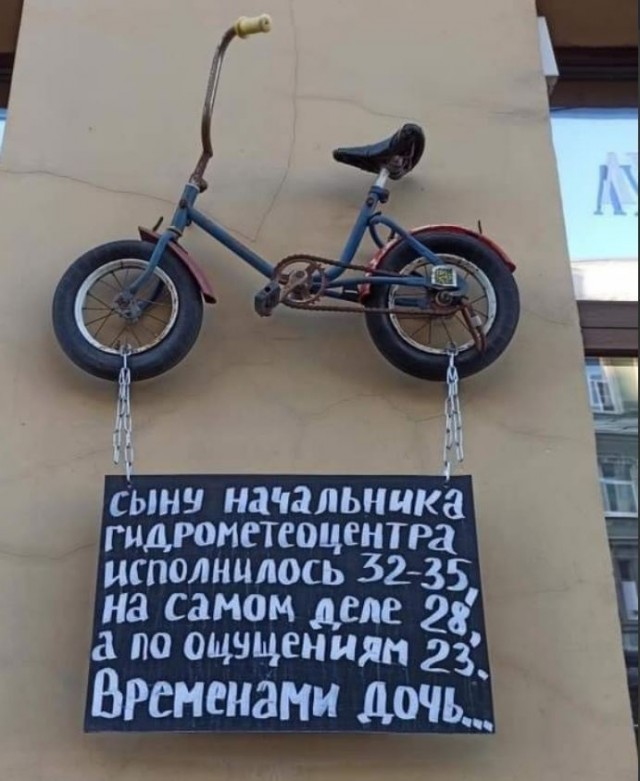 сыну начальника
гидрометеоцентра
исполнилось 32-35,
на самом деле 28,
а по ощущениям 23.
Временами дочь...